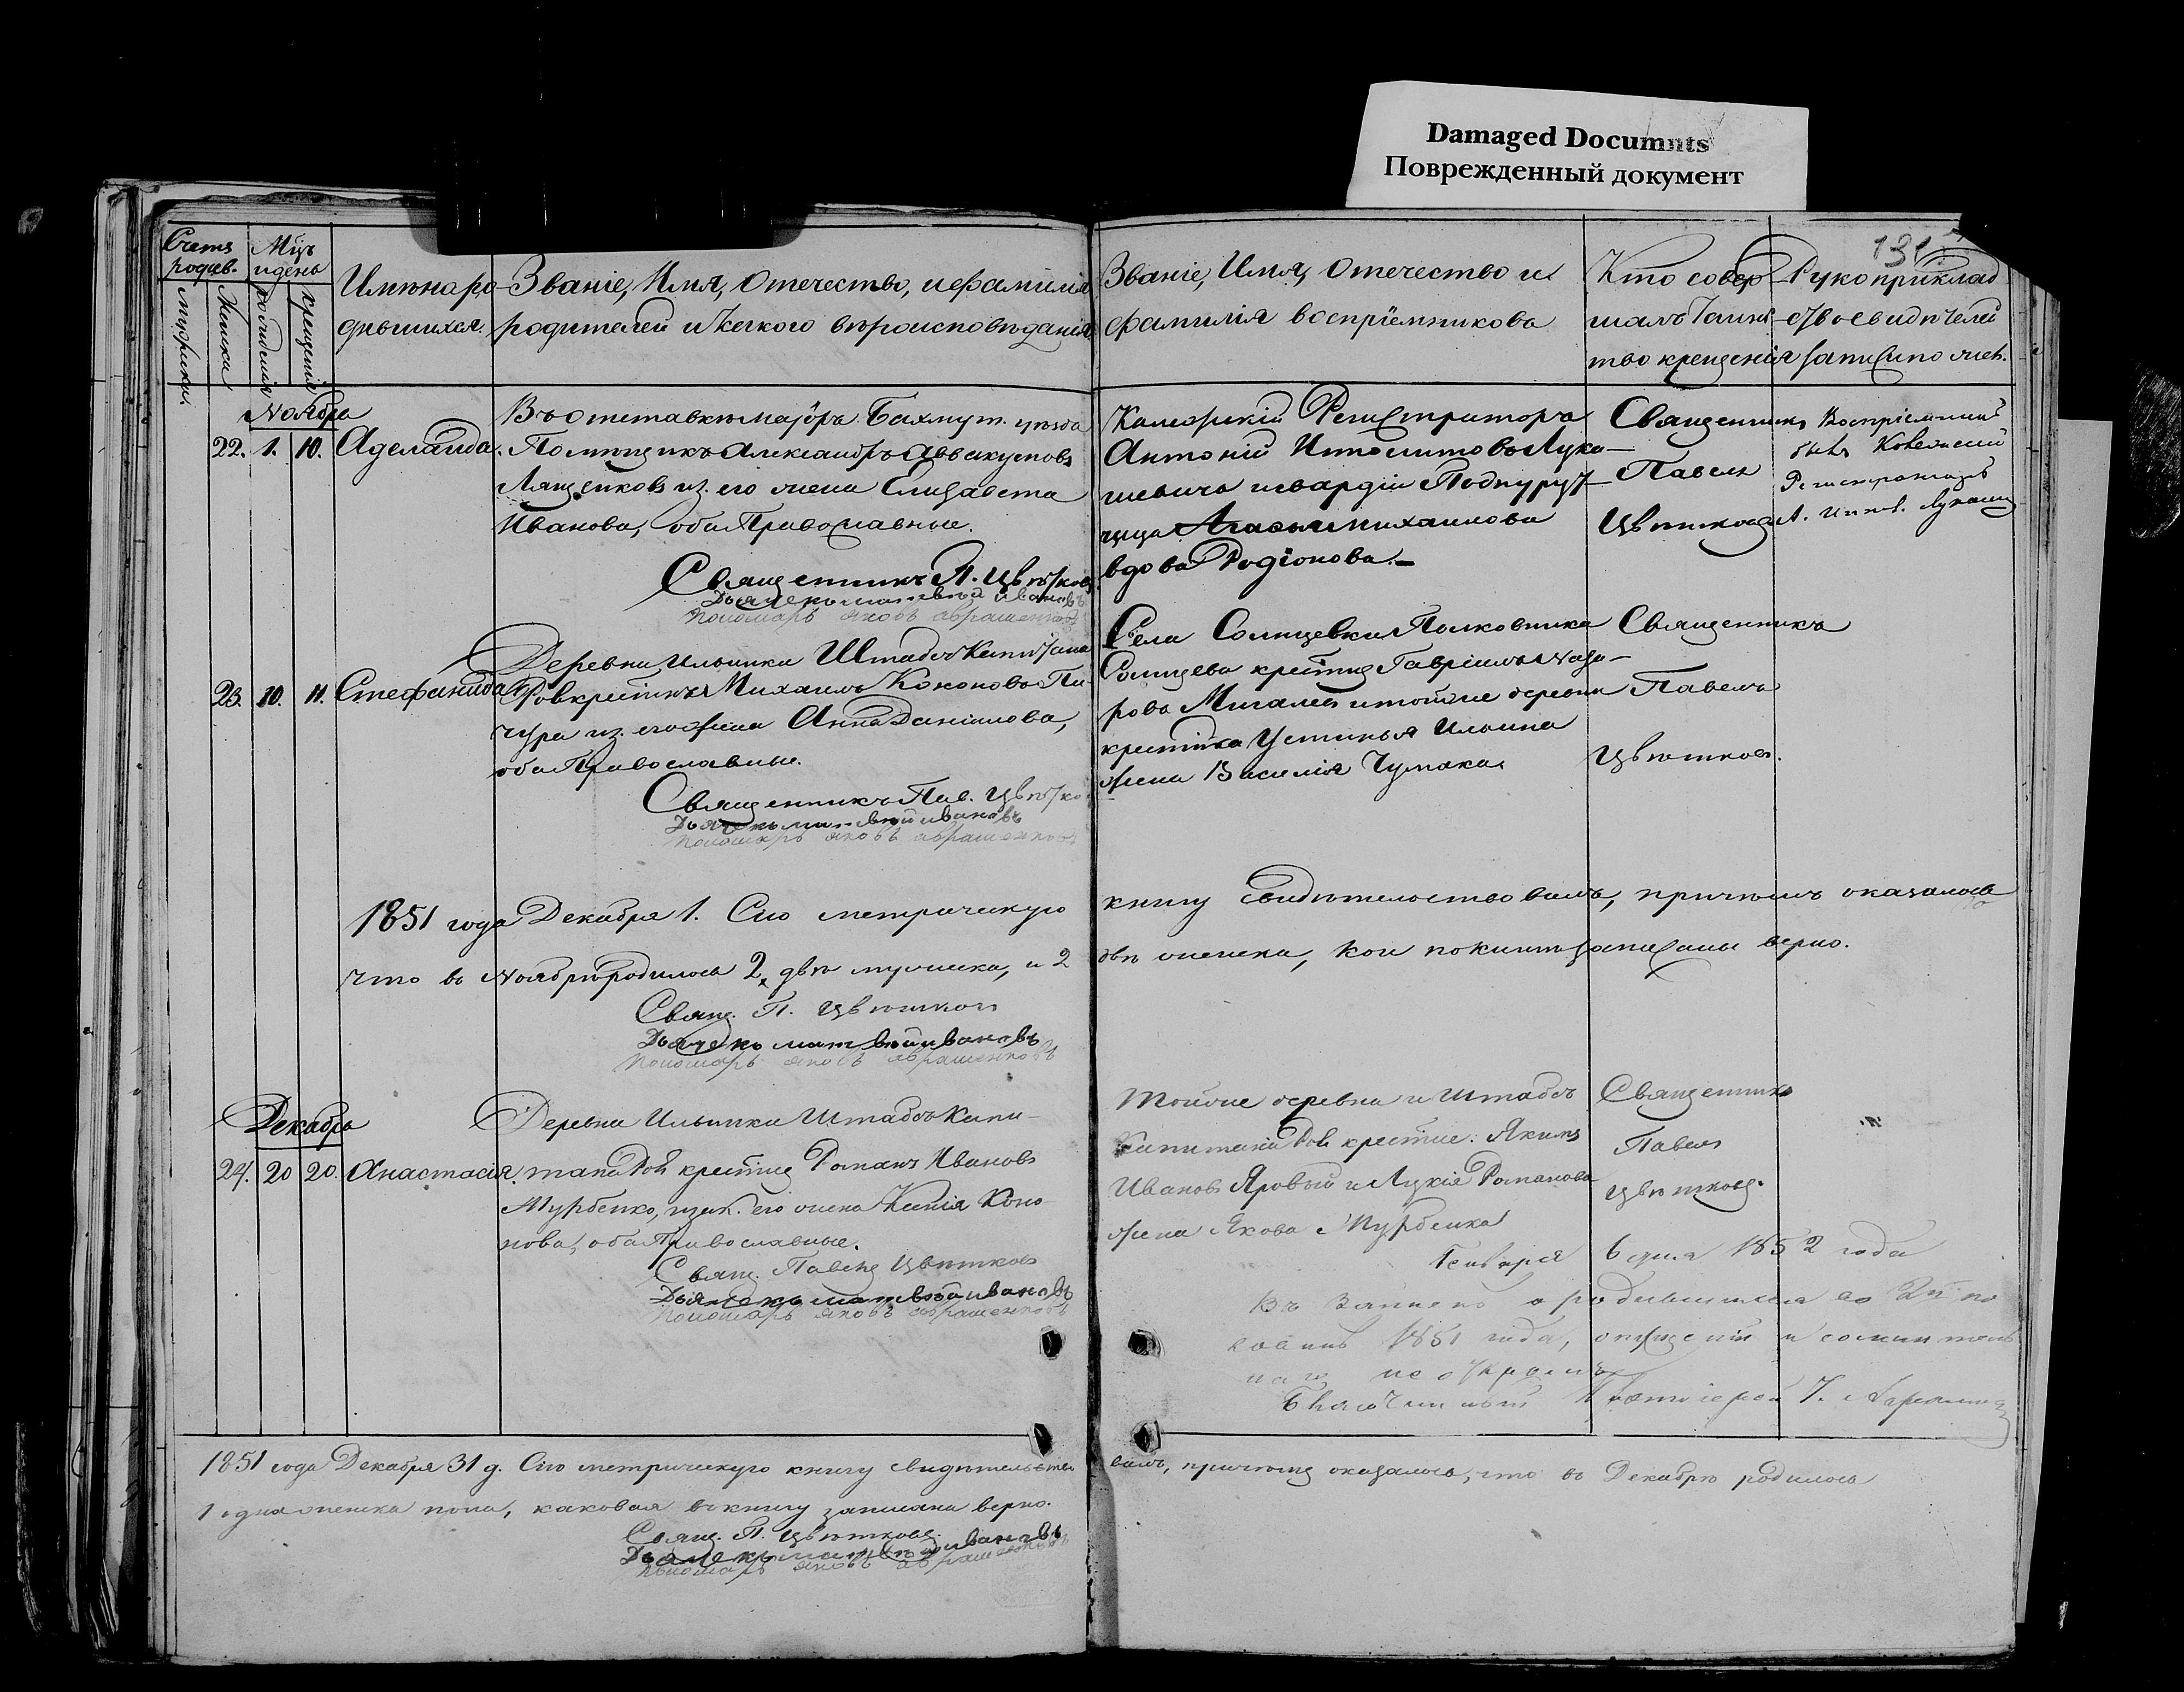 Damaged Documnts
Поврежденный документ
131
Счетъ родив.
Мцъ и день
мужески
Женска
рожденія
крещенія
Имѣна ро-
дившихся.
Званіе, Имя, Отечество, и фамилія
родителей и какого вѣроисповѣданія
Званіе, Имя, Отечество и
фамилія воспріемниковъ
Кто совер-
шалъ таинс-
тво крещенія
Рукоприклад
ство свидѣтелей
записи по жел.
Ноября
22. 1. 10. Аделаида.
Въ отставкѣ Маіоръ Бахмут. уѣзда
Помѣщикъ Александръ Аввакумовъ
Лященковъ из. его жена Елисавета
Иванова, оба Православные.
Священникъ П. Цвѣтковъ
Дьячекъ матвѣй ивановъ
пономарь яковъ аврашенковъ
Колежскій Регистраторъ
Антоній Ипполитовъ Лука-
шевичъ и гвардіи Подпорут-
чица Михаилова
вдова Родіонова.
Священникъ
Павелъ
Цвѣтковъ
Воспріемникомъ
былъ Колежский
Регистраторъ
А. Иппол. Лукаш
23. 10. 11. Стефанида
Деревни Ильинки Штабсъ Капитана
Рова крестнъ Михаилъ Кононовъ Пи-
чура из. его жена Анна Даніилова,
оба Православные.
Священникъ Пав. Цвѣтко
Дьячекъ матвѣй ивановъ
пономарь яковъ аврашенковъ
Села Солнцевки Полковника
Солнцева крестнц Гавріилъ Наза-
ровъ Мигалев и тойже деревни
крестнка Устинья Ильина
жена Василія Чумака.
Священникъ
Павелъ
Цвѣтковъ.
1851 года Декабря 1. Сію метрическую
книгу свидѣтельствовалъ, причемъ оказалось
что въ Ноябрѣ родилось 2, двѣ мужеска, и 2
двѣ женска, кои по книгѣ записаны верно.
Свящ. П. Цвѣтковъ
Дьячекъ матвѣй ивановъ
пономарь яковъ аврашенковъ
Декабрь
24. 20 20. Анастасія.
Деревни Ильинки Штабсъ Капи-
тана Рой крестнц Романъ Ивановъ
Мурбенко, изак. его жена Ксенія Коно
нова, оба Православные.
Свящ. Павелъ Цвѣтковъ
Дьячекъ матвѣй ивановъ
пономарь яковъ аврашенковъ
Тойже деревни и Штабсъ
Капитана Рой крестне. Якимъ
Ивановъ Яровый и Лукія Романова
жена Якова Мурбенка
Священникъ
Павелъ
Цвѣтковъ.
Генваря 6 дня 1852 года
Въ записяхъ о родившихся во 2й по
ловинѣ 1851 года, опущеній и сомнитель
наго не открылъ
Благочинный Протоіерей
1851 года Декабря 31 д. Сію метрическую книгу свидѣтельство
валъ, причемъ оказалось, что въ Декабрѣ родилось
1 одна женска пола, каковая въ книгу записана верно.
Свящ. П. Цвѣтковъ.
Дьячекъ матвѣй ивановъ
пономарь яковъ аврашенковъ